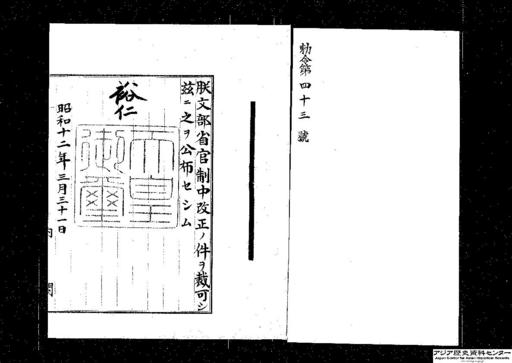 勅令第四十三號
朕文部省官制中改正ノ件ヲ裁可シ
茲ニ之ヲ公布セシム
裕仁
天皇御璽
昭和十二年三月三十一日
内閣
アジア歴史資料センター
Japan Center for Asian Historical Records